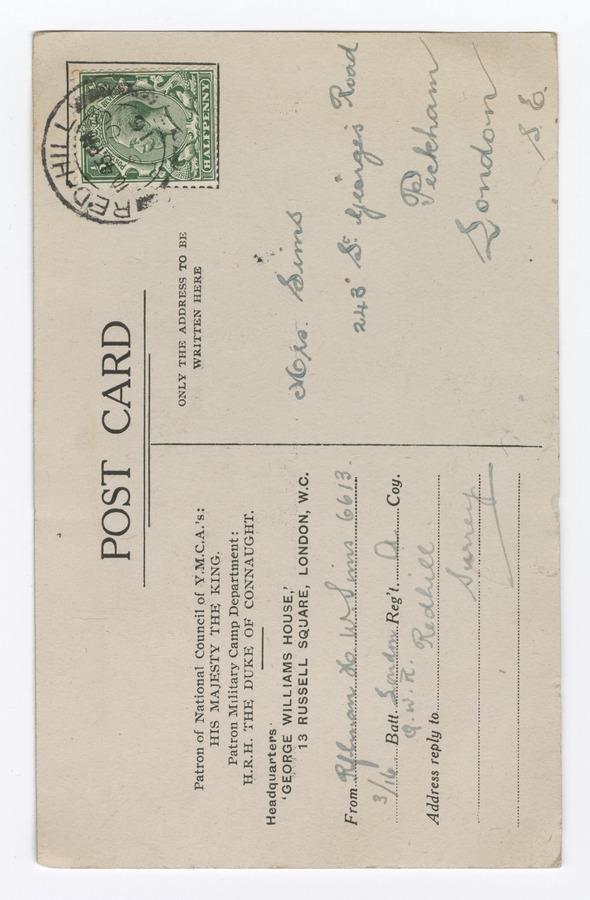 POST CARD
ONLY THE ADDRESS TO BE
WRITTEN HERE
HALFPENNY
RED HILL
Patron of National Council of Y.M.C.A.'s:
HIS MAJESTY THE KING.
Patron Military Camp Department:
H.R.H. THE DUKE OF CONNAUGHT.
Headquarters
'GEORGE WILLIAMS HOUSE,'
13 RUSSELL SQUARE, LONDON, W.C.
From Rflman H W Sims 6613.
3/16 Batt. London Reg't. A Coy.
Q. W. R.
Address reply to Redhill
Surrey
Mrs. Sims
243 St Georges Road
Peckham
London
S. E.